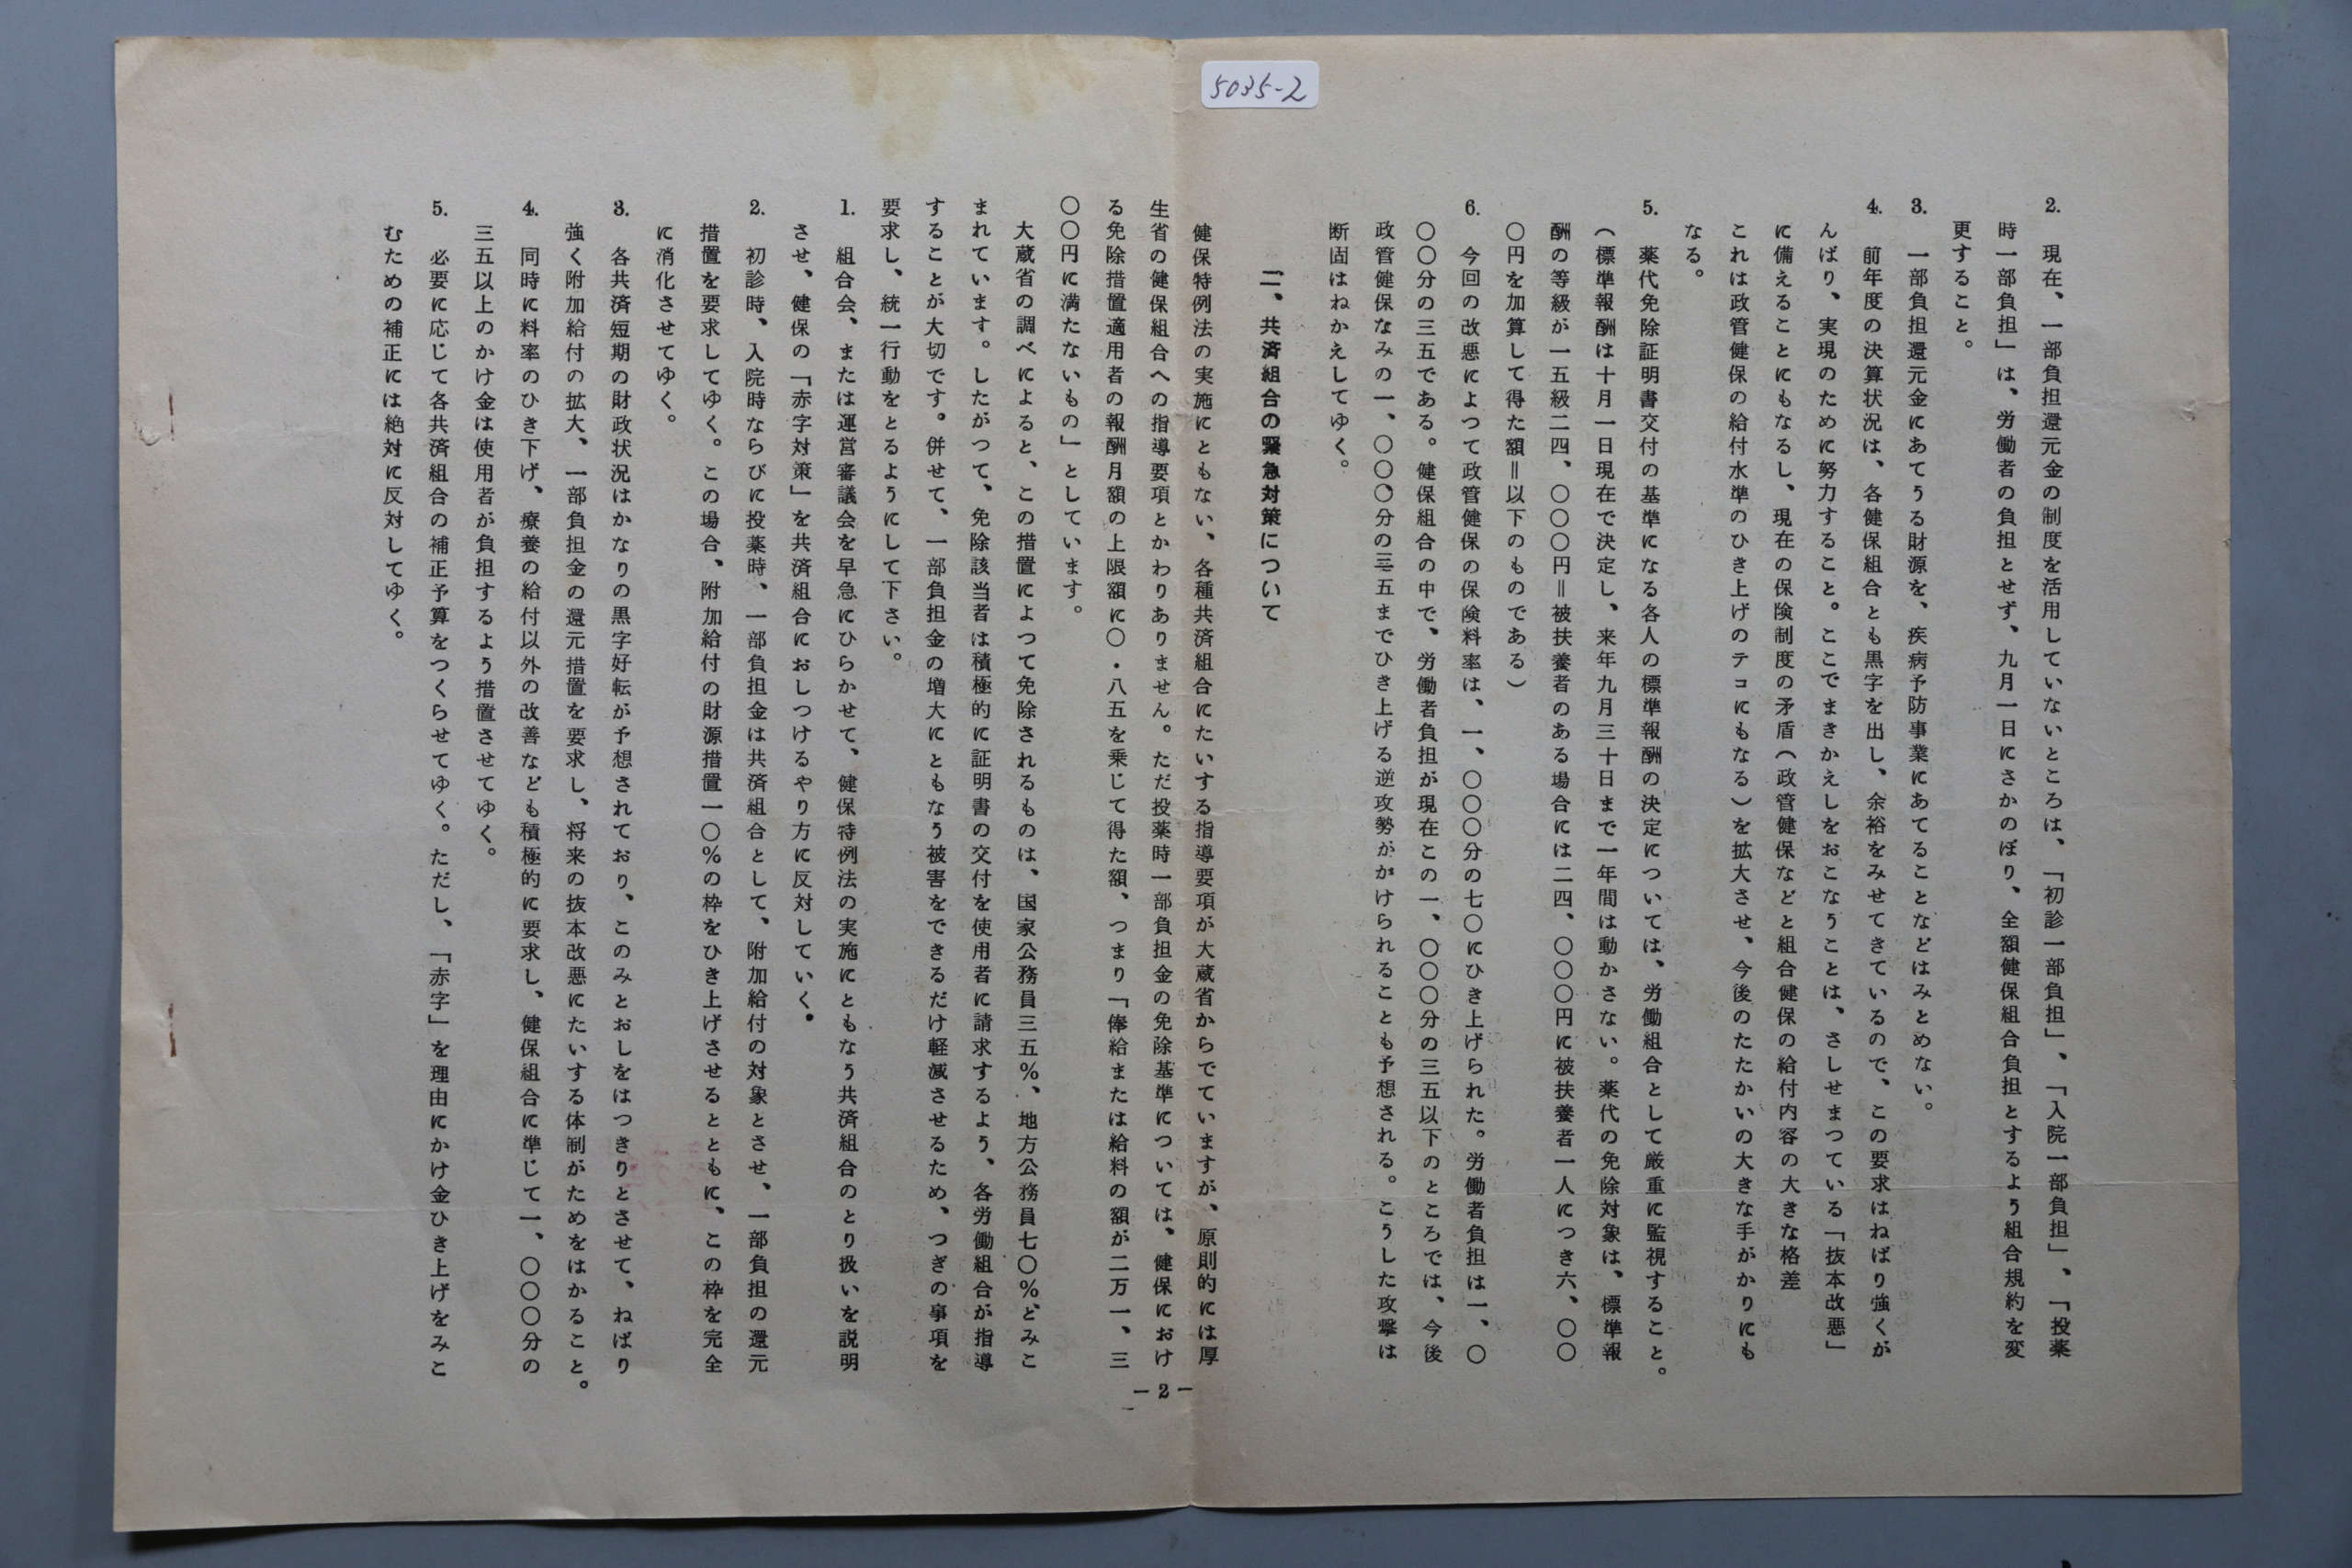 5035-2
2. 現在、一部負担還元金の制度を活用していないところは、「初診一部負担」、「入院一部負担」、「投薬
時一部負担」は、労働者の負担とせず、九月一日にさかのぼり、全額健保組合負担とするよう組合規約を変
更すること。
3. 一部負担還元金にあてうる財源を、疾病予防事業にあてることなどはみとめない。
4. 前年度の決算状況は、各健保組合とも黒字を出し、余裕をみせてきているので、この要求はねばり強くが
んばり、実現のために努力すること。ここでまきかえしをおこなうことは、さしせまつている「抜本改悪」
に備えることにもなるし、現在の保険制度の矛盾(政管健保などと組合健保の給付内容の大きな格差
これは政管健保の給付水準のひき上げのテコにもなる)を拡大させ、今後のたたかいの大きな手がかりにも
なる。
5. 薬代免除証明書交付の基準になる各人の標準報酬の決定については、労働組合として厳重に監視すること。
(標準報酬は十月一日現在で決定し、来年九月三十日まで一年間は動かさない。薬代の免除対象は、標準報
酬の等級が一五級二四、〇〇〇円=被扶養者のある場合には二四、〇〇〇円に被扶養者一人につき六、〇〇
〇円を加算して得た額=以下のものである)
6. 今回の改悪によつて政管健保の保険料率は、一、〇〇〇分の七〇にひき上げられた。労働者負担は一、〇
〇〇分の三五である。健保組合の中で、労働者負担が現在この一、〇〇〇分の三五以下のところでは、今後
政管健保なみの一、〇〇〇分の三五までひき上げる逆攻勢がかけられることも予想される。こうした攻撃は
断固はねかえしてゆく。
二、共済組合の緊急対策について
健保特例法の実施にともない、各種共済組合にたいする指導要項が大蔵省からでていますが、原則的には厚
生省の健保組合への指導要項とかわりありません。ただ投薬時一部負担金の免除基準については、健保におけ
る免除措置適用者の報酬月額の上限額に〇・八五を乗じて得た額、つまり「俸給または給料の額が二万一、三
〇〇円に満たないもの」としています。
大蔵省の調べによると、この措置によつて免除されるものは、国家公務員三五%、地方公務員七〇%とみこ
まれています。したがつて、免除該当者は積極的に証明書の交付を使用者に請求するよう、各労働組合が指導
することが大切です。併せて、一部負担金の増大にともなう被害をできるだけ軽減させるため、つぎの事項を
要求し、統一行動をとるようにして下さい。
1. 組合会、または運営審議会を早急にひらかせて、健保特例法の実施にともなう共済組合のとり扱いを説明
させ、健保の「赤字対策」を共済組合におしつけるやり方に反対していく。
2. 初診時、入院時ならびに投薬時、一部負担金は共済組合として、附加給付の対象とさせ、一部負担の還元
措置を要求してゆく。この場合、附加給付の財源措置一〇%の枠をひき上げさせるとともに、この枠を完全
に消化させてゆく。
3. 各共済短期の財政状況はかなりの黒字好転が予想されており、このみとおしをはつきりとさせて、ねばり
強く附加給付の拡大、一部負担金の還元措置を要求し、将来の抜本改悪にたいする体制がためをはかること。
4. 同時に料率のひき下げ、療養の給付以外の改善なども積極的に要求し、健保組合に準じて一、〇〇〇分の
三五以上のかけ金は使用者が負担するよう措置させてゆく。
5. 必要に応じて各共済組合の補正予算をつくらせてゆく。ただし、「赤字」を理由にかけ金ひき上げをみこ
むための補正には絶対に反対してゆく。
－2－